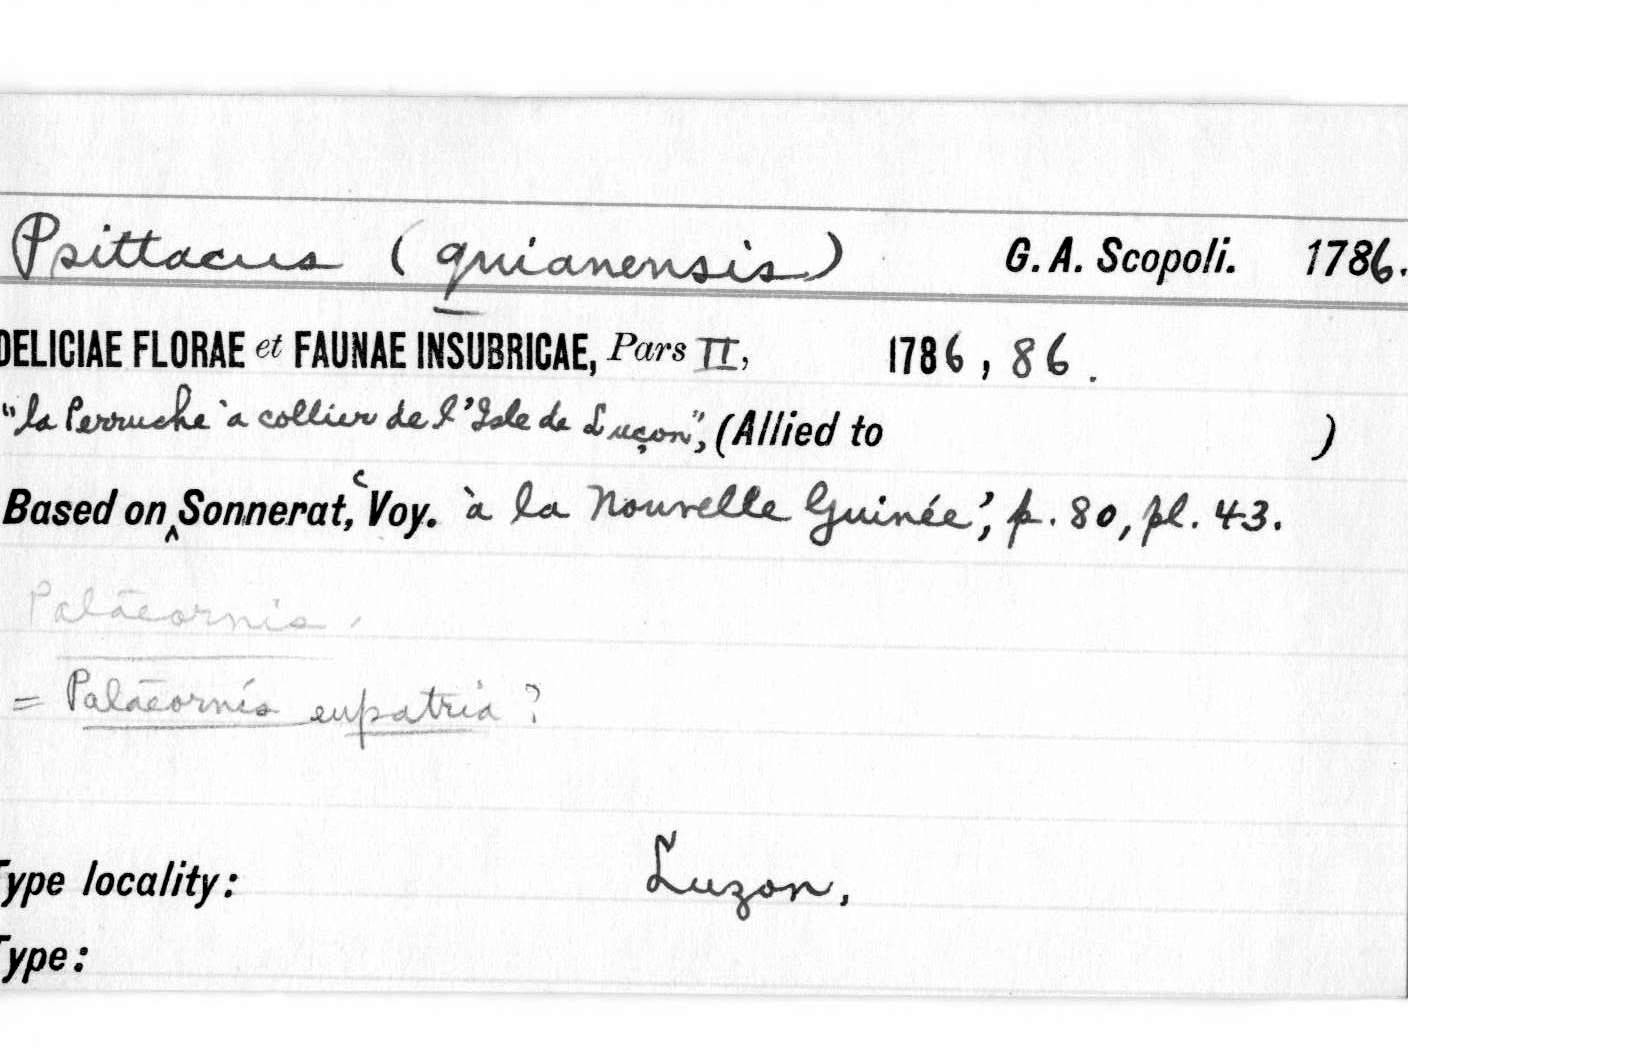 Psittacus (guianensis) G. A. Scopoli. 1786.
DELICIAE FLORAE et FAUNAE INSUBRICAE, Pars II, 1786, 86.
"la Perruche à collier de l'Isle de Luçon", (Allied to )
Based on ^ Sonnerat, ‘Voy. à la Nouvelle Guinée’, p. 80, pl. 43.
Palaeornis.
= Palaeornis eupatria ?
Type locality: Luzon.
Type: